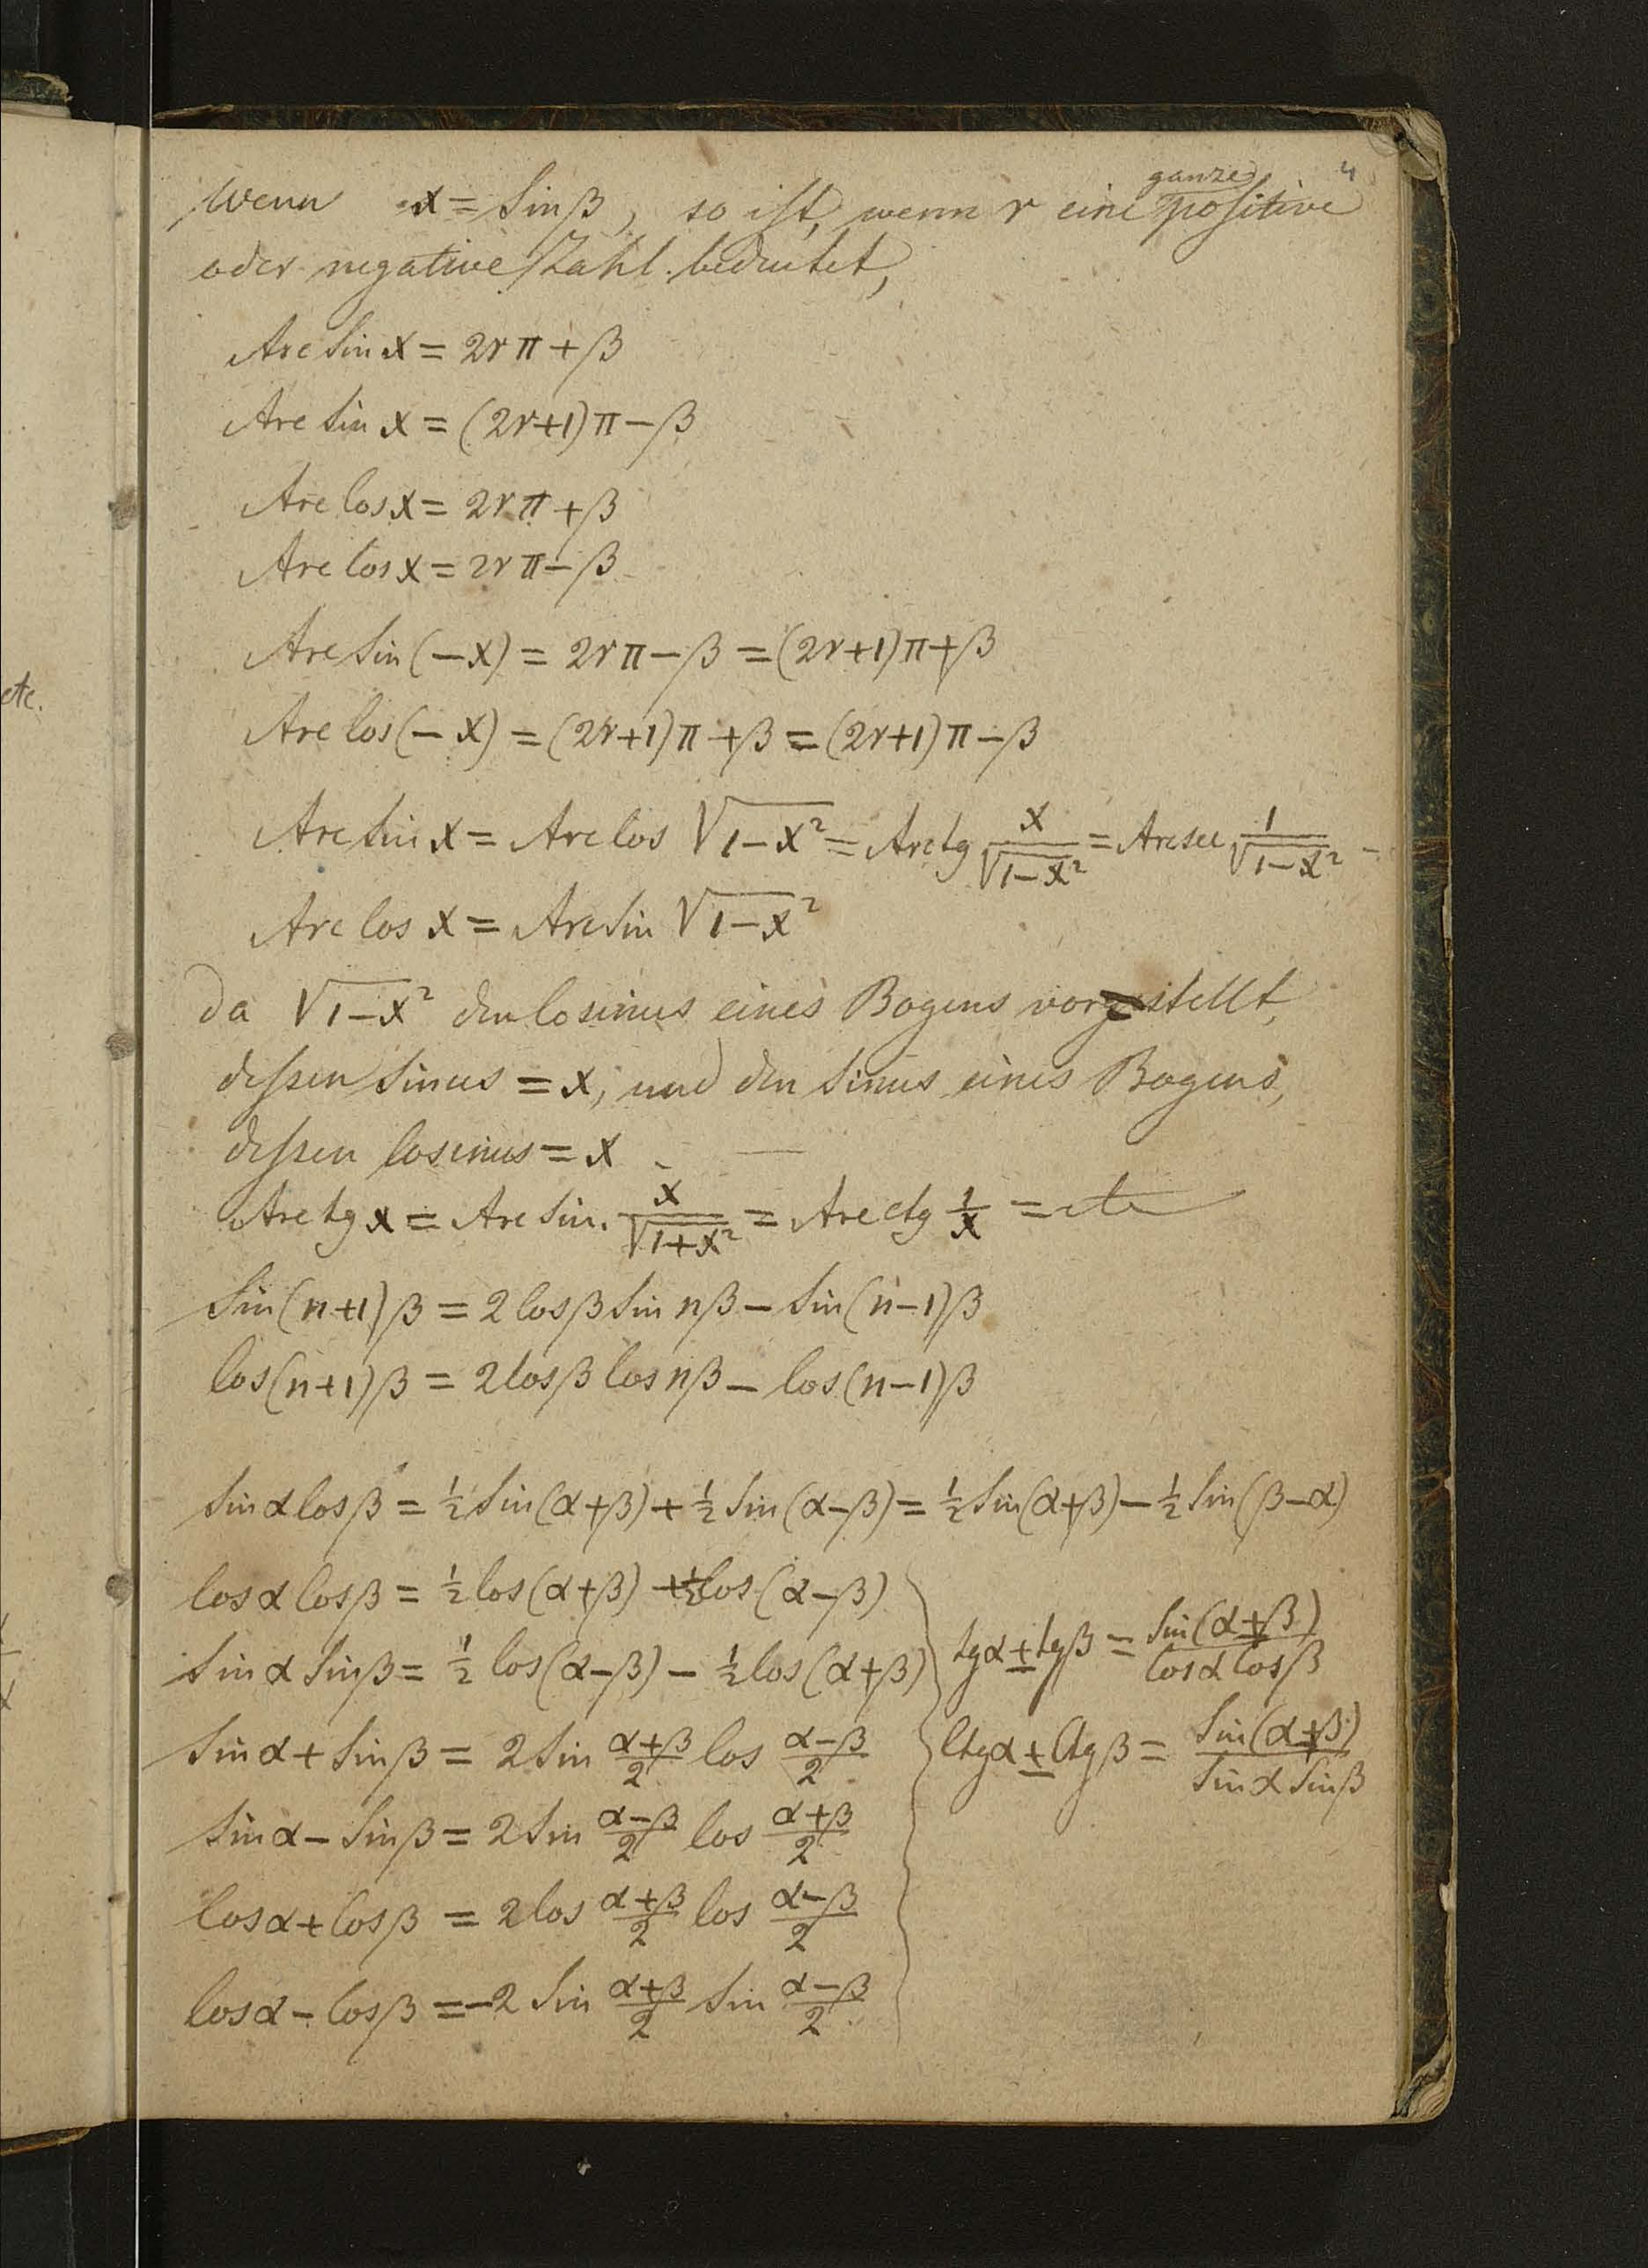 4
ganze
Wenn x = Sin β, so ist, wenn r eine positive
oder negative Zahl bedeutet,
Arc Sin x = 2rπ + β
Arc Sin x = (2r+1)π − β
Arc Cos x = 2rπ + β
Arc Cos x = 2rπ − β
Arc Sin (−x) = 2rπ − β = (2r+1)π + β
Arc Cos (−x) = (2r+1)π + β = (2r+1)π − β
Arc Sin x = Arc Cos √(1−x²) = Arc tg x/√(1−x²) = Arc sec 1/√(1−x²) −
Arc Cos x = Arc Sin √(1−x²)
Da √(1−x²) den Cosinus eines Bogens vorstellt,
dessen Sinus = x, und den Sinus eines Bogens,
dessen Cosinus = x
Arc tg x = Arc Sin. x/√(1+x²) = Arc ctg 1/x = etc
Sin (n+1)β = 2 Cos β Sin nβ − Sin (n−1)β
Cos (n+1)β = 2 Cos β Cos nβ − Cos (n−1)β
Sin α Cos β = ½ Sin (α+β) + ½ Sin (α−β) = ½ Sin (α+β) − ½ Sin (β−α)
Cos α Cos β = ½ Cos (α+β) + ½ Cos (α−β)
Sin α Sin β = ½ Cos (α−β) − ½ Cos (α+β)
Sin α + Sin β = 2 Sin (α+β)/2 Cos (α−β)/2
Sin α − Sin β = 2 Sin (α−β)/2 Cos (α+β)/2
Cos α + Cos β = 2 Cos (α+β)/2 Cos (α−β)/2
Cos α − Cos β = −2 Sin (α+β)/2 Sin (α−β)/2
tg α ± tg β = Sin (α±β)/Cos α Cos β
Ctg α ± Ctg β = Sin (α±β)/Sin α Sin β
etc.